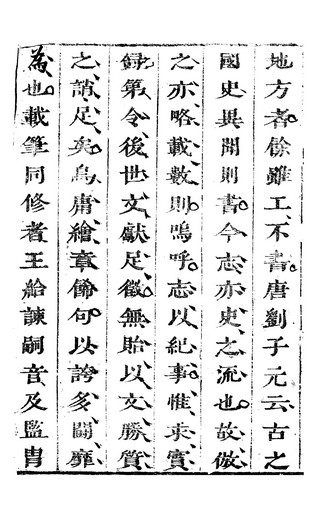 地方者餘雖工不書唐劉子元云古之
國史異聞則書今志亦史之流也故倣
之亦略載數則嗚呼志以紀事惟求實
錄第令後世文獻足徵無貽以文勝質
之誚足矣烏庸繪章飾句以誇多鬪靡
為也載筆同修者王給諫嗣音及監胄